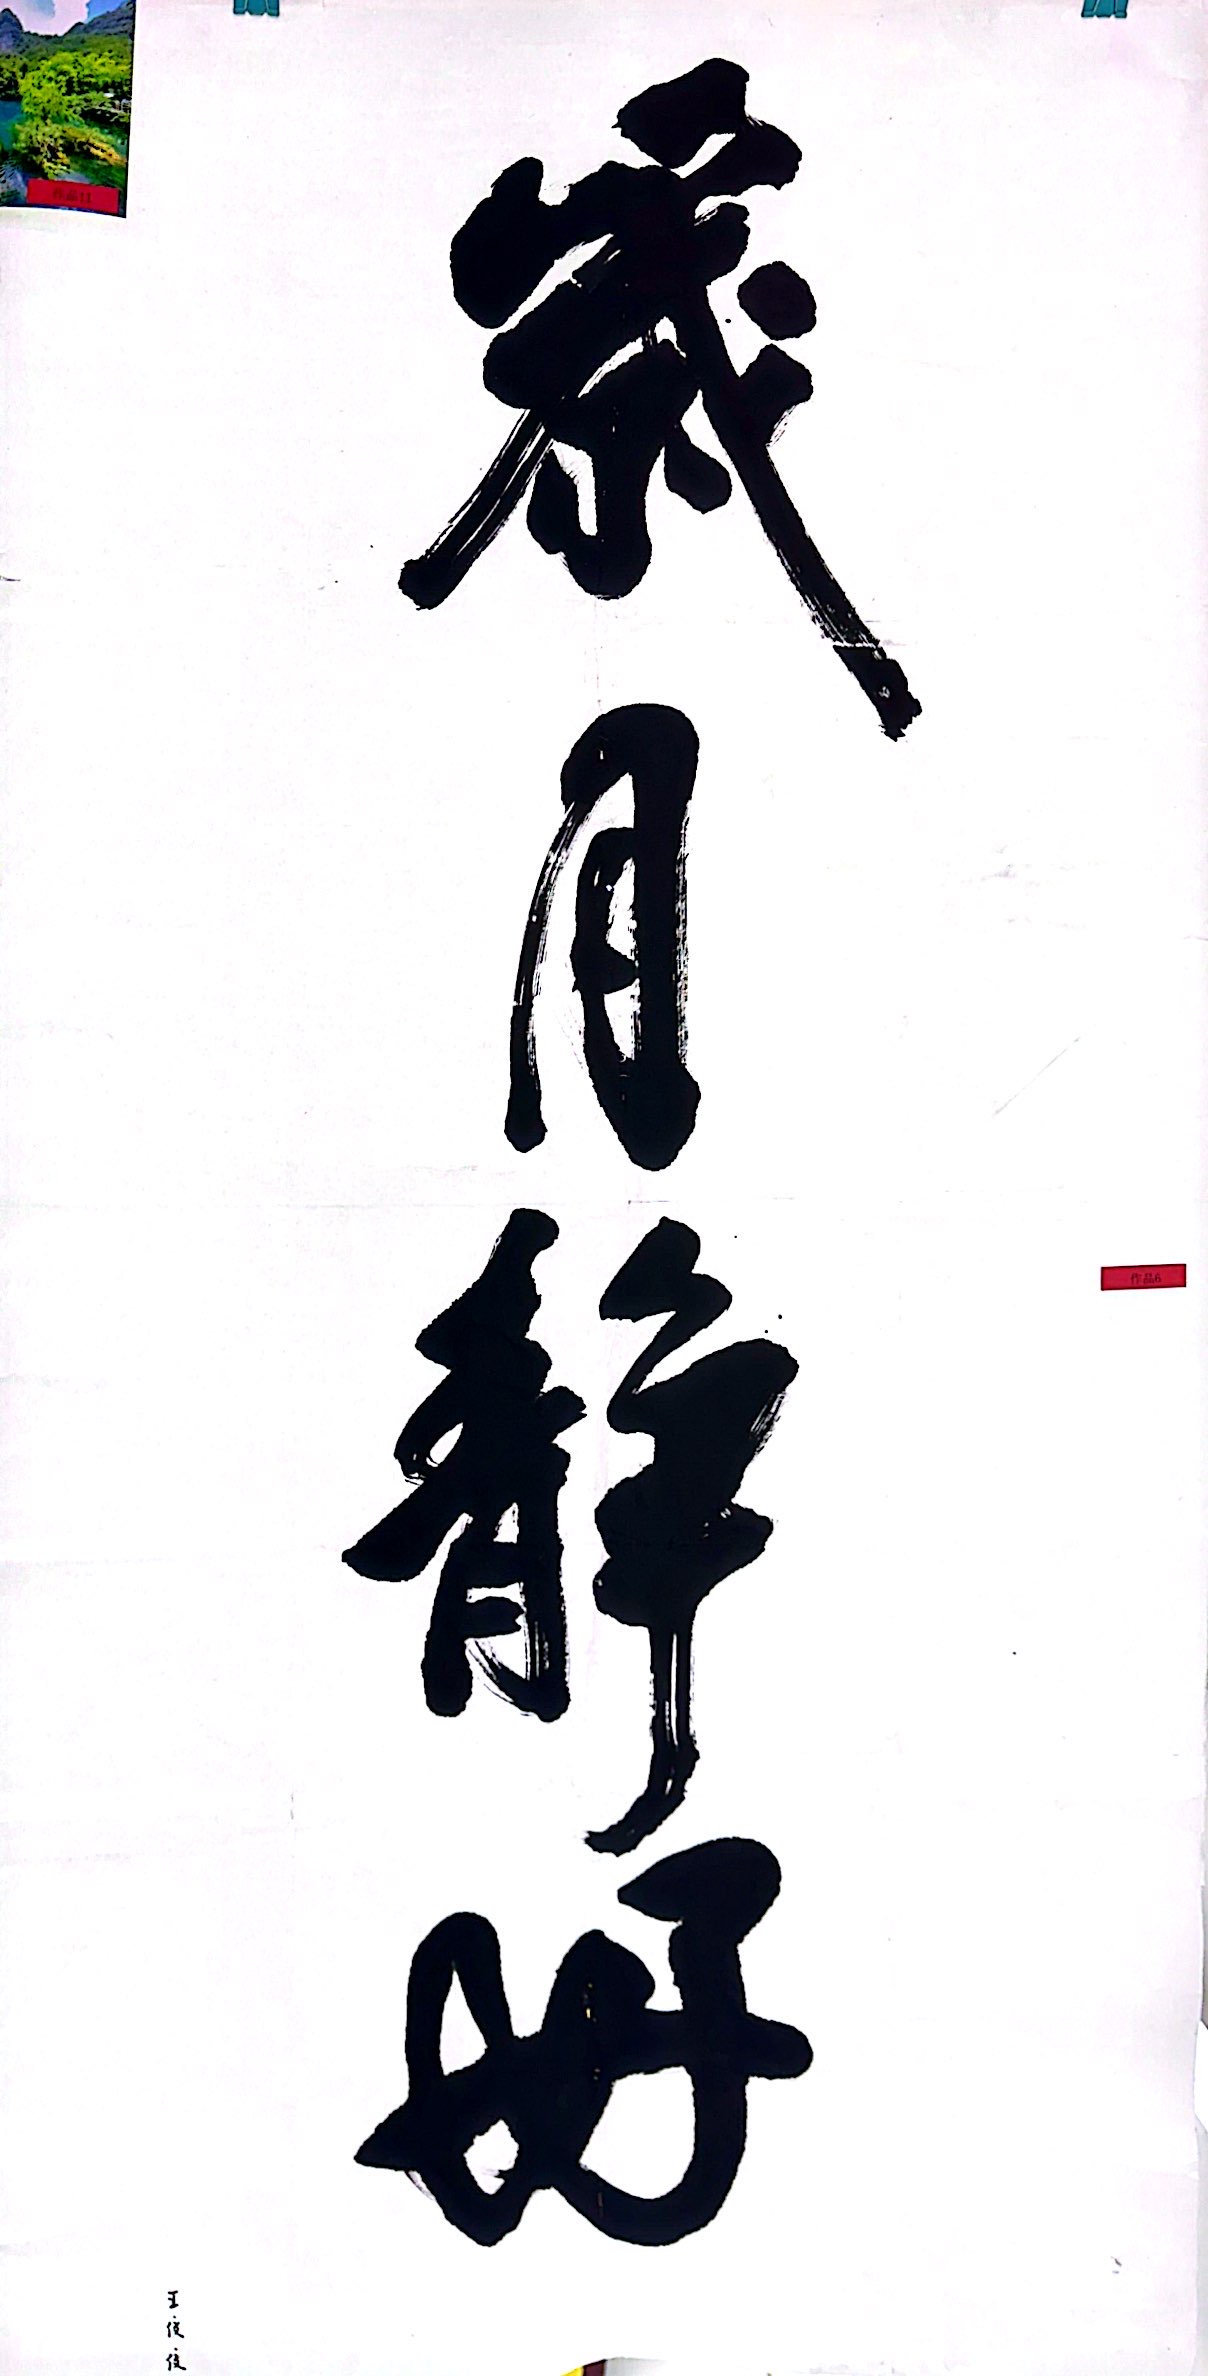 歲月静好
王俊俊
作品6
作品11